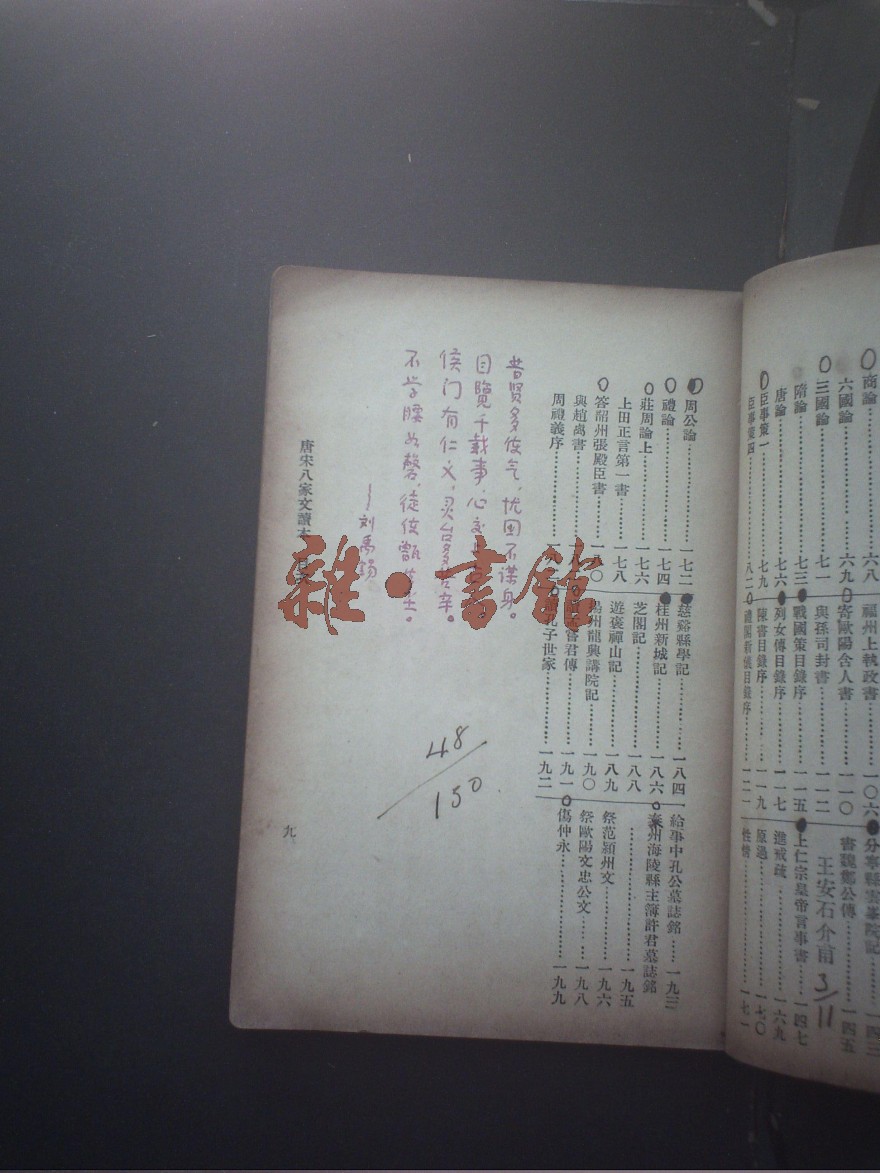 商論⋯⋯六八
六國論⋯⋯六九
三國論⋯⋯七一
隋論⋯⋯七三
唐論⋯⋯七六
臣事策一⋯⋯七九
臣事策四⋯⋯八二
福州上執政書⋯⋯一〇六
寄歐陽舍人書⋯⋯一一〇
與孫司封書⋯⋯一一二
戰國策目錄序⋯⋯一一五
列女傳目錄序⋯⋯一一七
陳書目錄序⋯⋯一一九
禮閣新儀目錄序⋯⋯一二一
分寧縣雲峯院記⋯⋯一四三
書魏鄭公傳⋯⋯一四五
王安石介甫
3/11
上仁宗皇帝言事書⋯⋯一四七
進戒疏⋯⋯一六九
原過⋯⋯一七〇
性情⋯⋯一七一
周公論⋯⋯一七二
禮論⋯⋯一七四
莊周論上⋯⋯一七六
上田正言第一書⋯⋯一七八
答韶州張殿臣書⋯⋯一八〇
與趙卨書⋯⋯一八
周禮義序⋯⋯一八
慈谿縣學記⋯⋯一八四
桂州新城記⋯⋯一八六
芝閣記⋯⋯一八八
遊褒禪山記⋯⋯一八九
揚州龍興講院記⋯⋯一九〇
君傳⋯⋯一九一
孔子世家⋯⋯一九二
給事中孔公墓誌銘⋯⋯一九三
泰州海陵縣主簿許君墓誌銘
⋯⋯一九五
祭范潁州文⋯⋯一九六
祭歐陽文忠公文⋯⋯一九八
傷仲永⋯⋯一九九
昔贤多使气，忧国不谋身。
目覽千载事，心交上
侯门有仁义，灵台多苦辛。
不学腰如磬，徒使甑生尘。
—刘禹锡
48/150
唐宋八家文讀本 目
九
雜·書館